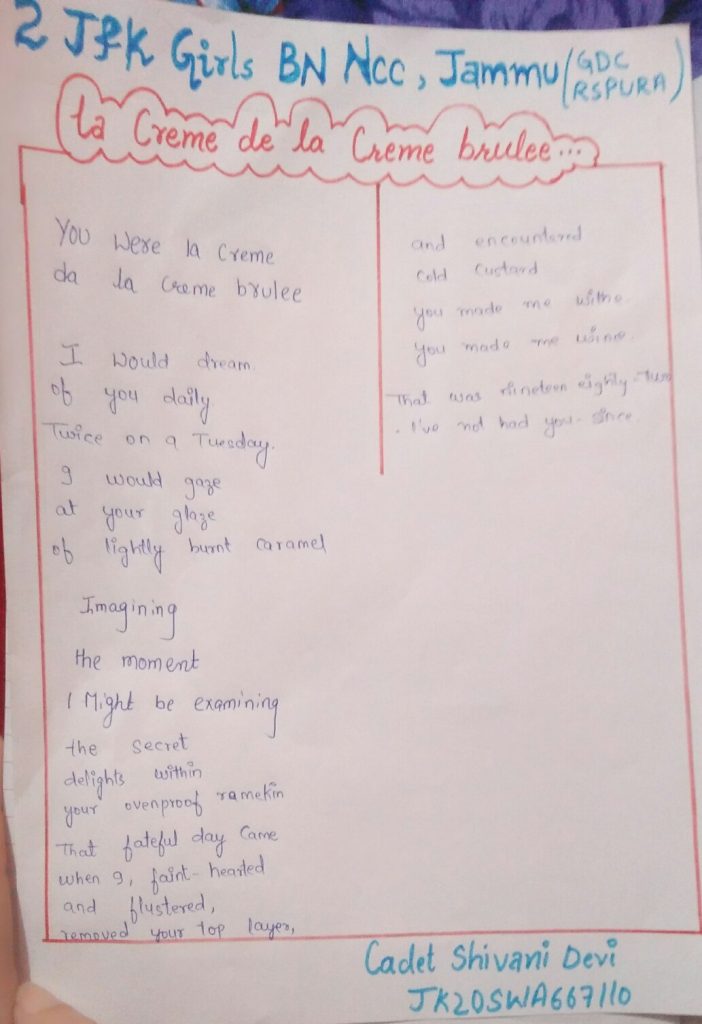 2 J&K Girls BN NCC, Jammu (GDC RSPURA)
la Creme de la Creme brulee...
You Were la Creme
da la Creme brulee
I Would dream
of you daily
Twice on a Tuesday.
I would gaze
at your glaze
of lightly burnt caramel
Imagining
the moment
I Might be examining
the secret
delights within
your ovenproof ramekin
That fateful day Came
when I, faint-hearted
and flustered,
removed your top layer,
and encountered
Cold Custard
you made me
you made me
That was nineteen eighty-two
. I've not had you since
Cadet Shivani Devi
JK20SWA667110